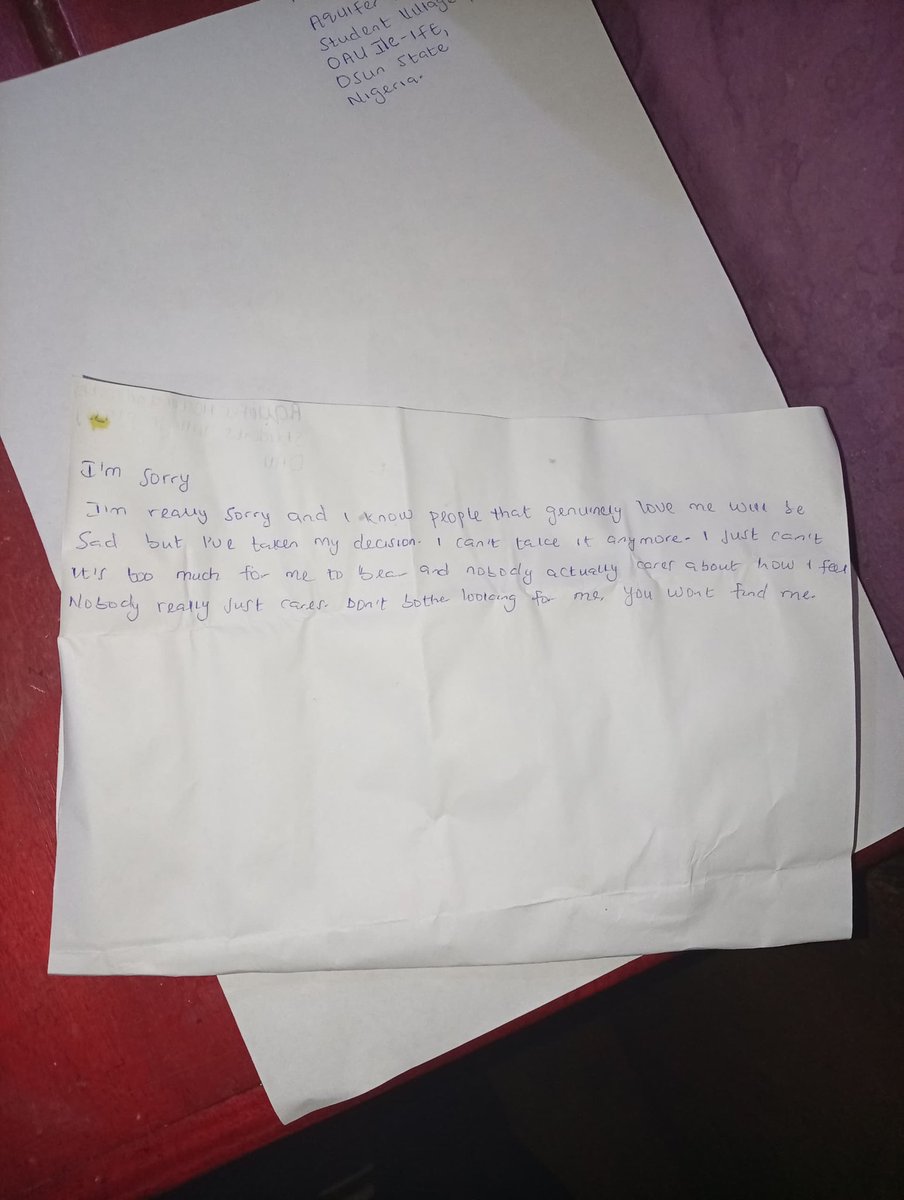 Aquifer
Student Village
OAU Ile-IFE,
Osun State
Nigeria.
I'm sorry
I'm really sorry and I know people that genuinely love me will be
sad but I've taken my decision. I can't take it anymore. I just can't
It's too much for me to bear and nobody actually cares about how I feel
Nobody really just cares. Don't bothe looking for me. You wont find me.